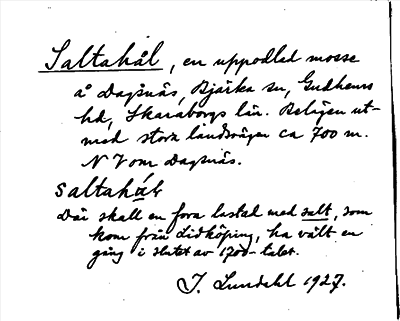 Saltahål, en uppodlad mosse
å Dagsnäs, Bjärka sn, Gudhems
hd, Skaraborgs län. Belägen ut-
med stora landsvägen ca 700 m.
N V om Dagsnäs.
saltahål
Där skall en fora lastad med salt, som
kom från Lidköping, ha vält en
gång i slutet av 1700-talet.
J. Lundahl 1927.